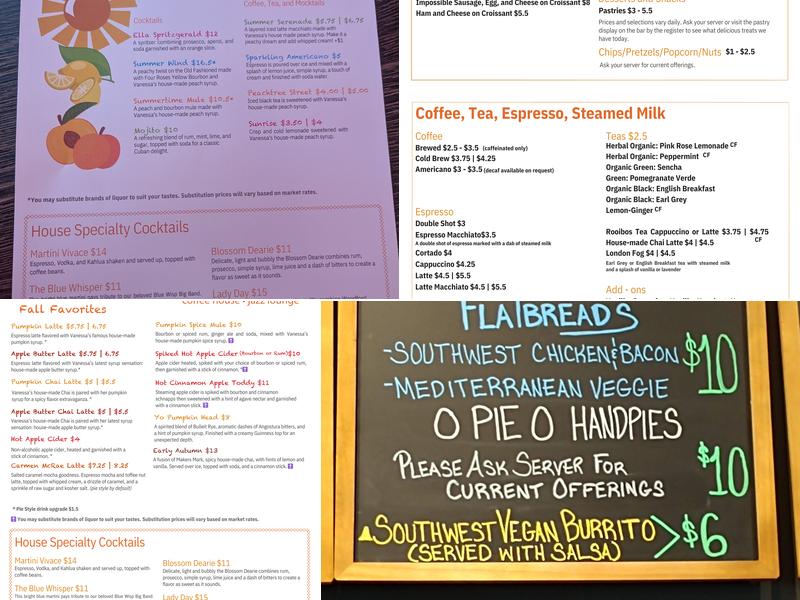 Cocktails
Ella Spritzgerald $12
A spritzer combining prosecco, aperol, and
soda garnished with an orange slice.
Summer Wind $16.5*
A peachy twist on the Old Fashioned made
with Four Roses Yellow Bourbon and
Vanessa's house-made peach syrup.
Summertime Mule $10.5*
A peach and bourbon mule made with
Vanessa's house-made peach syrup.
Mojito $10
A refreshing blend of rum, mint, lime, and
sugar, topped with soda for a classic
Cuban delight.
Coffee, Tea, and Mocktails
Summer Serenade $5.75 | $6.75
A layered iced latte macchiato made with
Vanessa's house made peach syrup. Make it a
dreamy peach and add whipped cream! +$1
Sparkling Americano $5
Espresso is poured over ice and mixed with a
splash of lemon juice, simple syrup, a touch of
cream and finished with soda water.
Peachtree Street $4.00 | $5.00
Iced black tea is sweetened with Vanessa's
house-made peach syrup.
Sunrise $3.50 | $4
Crisp and cold lemonade sweetened with
Vanessa's house-made peach syrup.
*You may substitute brands of liquor to suit your tastes. Substitution prices will vary based on market rates.
House Specialty Cocktails
Martini Vivace $14
Espresso, Vodka, and Kahlua shaken and served up, topped with
coffee beans.
The Blue Whisper $11
This bright blue martini pays tribute to our beloved Blue Wisp Big Band.
Blossom Dearie $11
Delicate, light and bubbly the Blossom Dearie combines rum,
prosecco, simple syrup, lime juice and a dash of bitters to create a
flavor as sweet as it sounds.
Lady Day $15
Impossible Sausage, Egg, and Cheese on Croissant $8
Ham and Cheese on Croissant $5.5
Desserts and Snacks
Pastries $3 - 5.5
Prices and selections vary daily. Ask your server or visit the pastry
display on the bar by the register to see what delicious treats we
have today.
Chips/Pretzels/Popcorn/Nuts $1 - $2.5
Ask your server for current offerings.
Coffee, Tea, Espresso, Steamed Milk
Coffee
Brewed $2.5 - $3.5 (caffeinated only)
Cold Brew $3.75 | $4.25
Americano $3 - $3.5 (decaf available on request)
Espresso
Double Shot $3
Espresso Macchiato$3.5
A double shot of espresso marked with a dab of steamed milk
Cortado $4
Cappuccino $4.25
Latte $4.5 | $5.5
Latte Macchiato $4.5 | $5.5
Teas $2.5
Herbal Organic: Pink Rose Lemonade CF
Herbal Organic: Peppermint CF
Organic Green: Sencha
Green: Pomegranate Verde
Organic Black: English Breakfast
Organic Black: Earl Grey
Lemon-Ginger CF
Rooibos Tea Cappuccino or Latte $3.75 | $4.75
CF
House-made Chai Latte $4 | $4.5
London Fog $4 | $4.5
Earl Grey or English Breakfast tea with steamed milk
and a splash of vanilla or lavender
Add - ons
Coffee house • jazz lounge
Fall Favorites
Pumpkin Latte $5.75 | 6.75
Espresso latte flavored with Vanessa's famous house-made
pumpkin syrup. *
Apple Butter Latte $5.75 | 6.75
Espresso latte flavored with Vanessa's latest syrup sensation:
house-made apple butter syrup.*
Pumpkin Chai Latte $5 | $5.5
Vanessa's house-made chai is paired with her pumpkin
syrup for a spicy flavor extravaganza. *
Apple Butter Chai Latte $5 | $5.5
Vanessa's house-made chai is paired with her latest
syrup sensation: house-made apple butter syrup.*
Hot Apple Cider $4
Non-alcoholic apple cider, heated and garnished with a
stick of cinnamon. *
Carmen McRae Latte $7.25 | 8.25
Salted caramel mocha goodness. Espresso mocha and toffee nut
latte, topped with whipped cream, a drizzle of caramel, and a
sprinkle of raw sugar and kosher salt. (pie style by default)
Pumpkin Spice Mule $10
Bourbon or spiced rum, ginger ale and soda, mixed with Vanessa's
house-made pumpkin spice syrup.
Spiked Hot Apple Cider (Bourbon or Rum)$10
Apple cider heated, spiked with your choice of bourbon or spiced rum,
then garnished with a stick of cinnamon. *
Hot Cinnamon Apple Toddy $11
Steaming apple cider is spiked with bourbon and cinnamon
schnapps then sweetened with a hint of agave nectar and garnished
with a stick of cinnamon.
Yo Pumpkin Head $8
A spirited blend of Bulleit Rye, aromatic dashes of Angostura bitters, and
a hint of pumpkin syrup. Finished with a creamy Guinness top for an
unexpected depth.
Early Autumn $13
A fusion of Makers Mark, spicy house-made chai, with hints of lemon and
vanilla. Served over ice, topped with soda, and a cinnamon stick.
* Pie Style drink upgrade $1.5
You may substitute brands of liquor to suit your tastes. Substitution prices will vary based on market rates.
House Specialty Cocktails
Martini Vivace $14
Espresso, Vodka, and Kahlua shaken and served up, topped with
coffee beans.
The Blue Whisper $11
This bright blue martini pays tribute to our beloved Blue Wisp Big Band.
Blossom Dearie $11
Delicate, light and bubbly the Blossom Dearie combines rum,
prosecco, simple syrup, lime juice and a dash of bitters to create a
flavor as sweet as it sounds.
Lady Day $15
FLATBREADS
-SOUTHWEST CHICKEN & BACON
-MEDITERRANEAN VEGGIE
$10
O PIE O HANDPIES
PLEASE ASK SERVER FOR
CURRENT OFFERINGS
$10
SOUTHWEST VEGAN BURRITO > $6
(SERVED WITH SALSA)